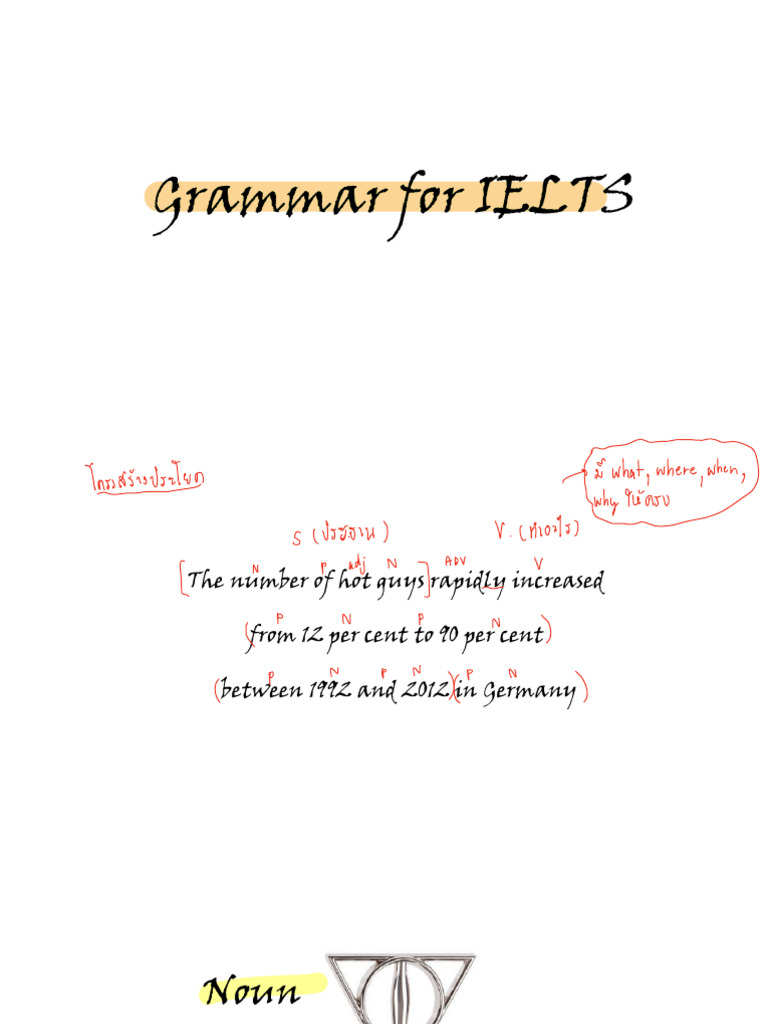 Grammar for IELTS
โครงสร้างประโยค
มี what, where, when,
why ให้ครบ
S (ประธาน) V. (ทำอะไร)
N P adj N ADV V
[The number of hot guys] rapidly increased
P N P N
(from 12 per cent to 90 per cent)
P N P N P N
(between 1992 and 2012)(in Germany)
Noun